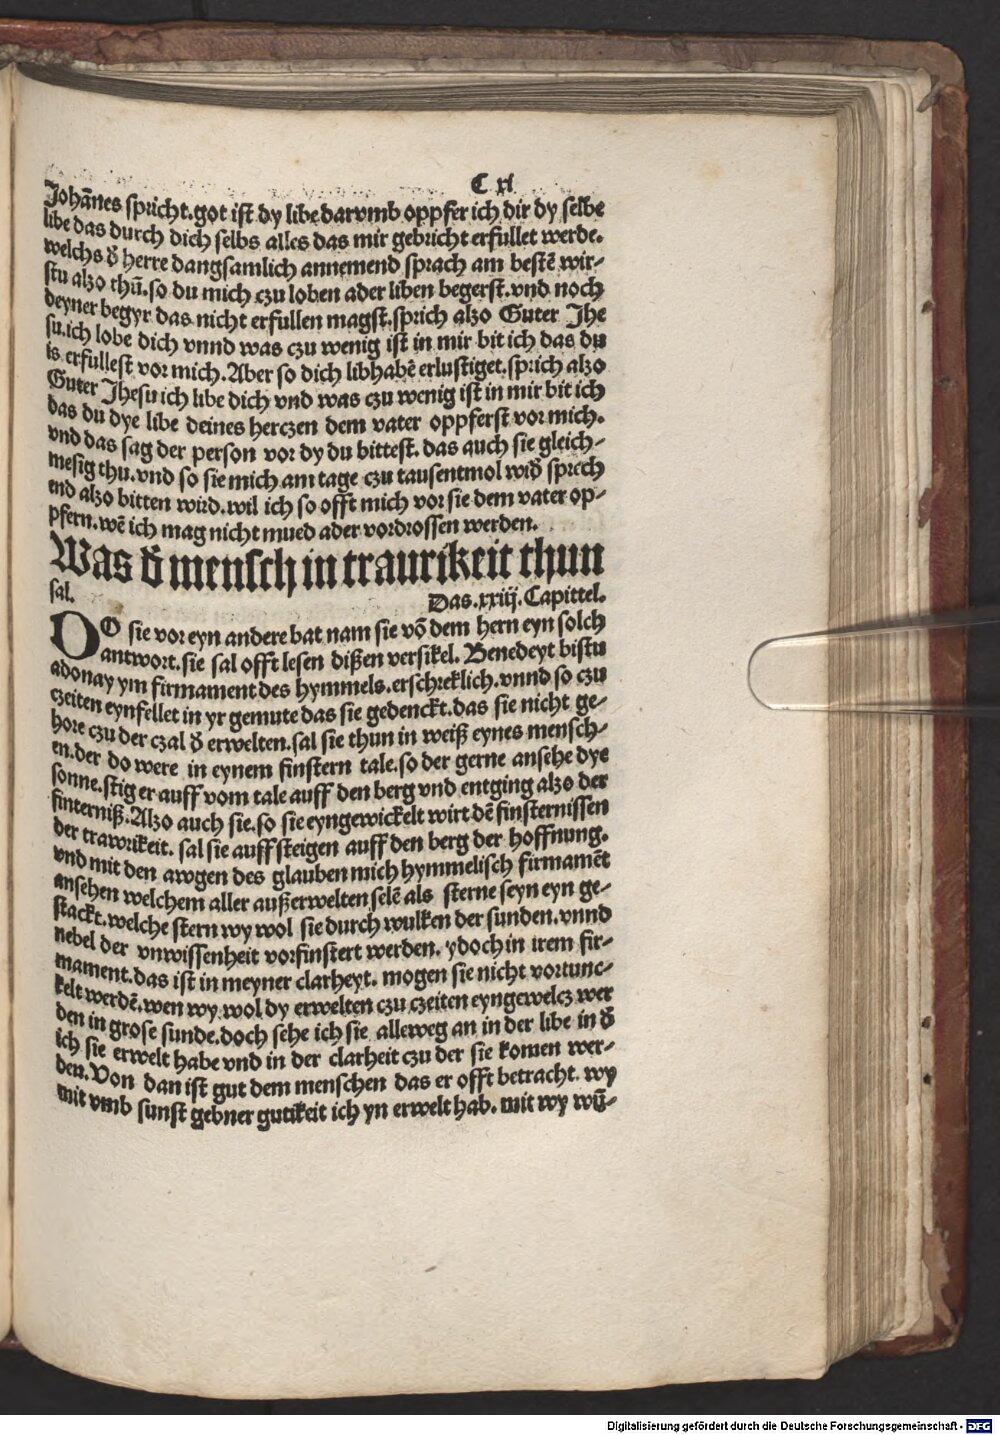 C xl
Johãnes spricht.got ist dy libe darvmb oppfer ich dir dy selbe
libe das durch dich selbs alles das mir gebricht erfullet werde.
welchs d̄ herre dangsamlich annemend sprach am bestē wir-
stu alzo thū.so du mich czu loben ader liben begerst.vnd noch
deyner begyr das nicht erfullen magst.sprich alzo Guter Jhe
su.ich lobe dich vnnd was czu wenig ist in mir bit ich das du
is erfullest vor mich.Aber so dich libhabē erlustiget.sprich alzo
Guter Jhesu ich libe dich vnd was czu wenig ist in mir bit ich
das du dye libe deines herczen dem vater oppferst vor mich.
vnd das sag der person vor dy du bittest.das auch sie gleich-
mesig thu.vnd so sie mich am tage czu tausentmol wid̄ sprech
end alzo bitten wird.wil ich so offt mich vor sie dem vater op-
pfern.wē ich mag nicht mued ader vordrossen werden.
Was d̄ mensch in traurikeit thun
sal. Das.xxiij.Capittel.
DO sie vor eyn andere bat nam sie vō dem hern eyn solch
antwort.sie sal offt lesen dißen versikel. Benedeyt bistu
adonay ym firmament des hymmels.erschreklich.vnnd so czu
czeiten eynfellet in yr gemute das sie gedenckt.das sie nicht ge-
hore czu der czal d̄ erwelten.sal sie thun in weiß eynes mensch-
en.der do were in eynem finstern tale.so der gerne ansehe dye
sonne.stig er auff vom tale auff den berg vnd entging alzo der
finterniß.Alzo auch sie.so sie eyngewickelt wirt dē finsternissen
der trawrikeit. sal sie auff steigen auff den berg der hoffnung.
vnd mit den awgen des glauben mich hymmelisch firmamēt
ansehen welchem aller außerwelten selē als sterne seyn eyn ge-
stackt.welche stern wy wol sie durch wulken der sunden.vnnd
nebel der vnwissenheit vorfinstert werden. ydoch in irem fir-
mament.das ist in meyner clarheyt. mogen sie nicht vortunc-
kelt werdē.wen wy wol dy erwelten czu czeiten eyngewelcz wer
den in grose sunde.doch sehe ich sie alleweg an in der libe in d̄
ich sie erwelt habe vnd in der clarheit czu der sie komen wer-
den.Von dan ist gut dem menschen das er offt betracht. wy
mit vmb sunst gebner gutikeit ich yn erwelt hab. mit wy wū-
Digitalisierung gefördert durch die Deutsche Forschungsgemeinschaft - DFG